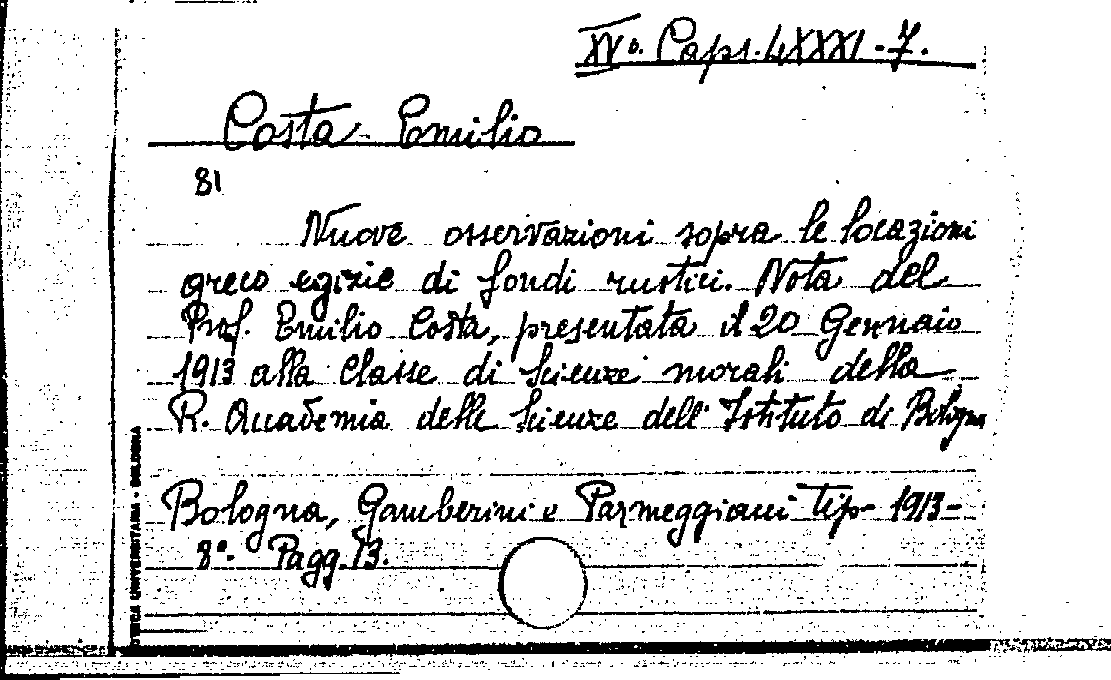 XVº. Caps. LXXXI - 7.
Costa Emilio
81
Nuove osservazioni sopra le locazioni
greco egizie di fondi rustici. Nota del
Prof. Emilio Costa, presentata il 20 Gennaio
1913 alla Classe di Scienze morali della
R. Accademia delle Scienze dell'Istituto di Bologna
Bologna, Gamberini e Parmeggiani Tip- 1913-
8º- Pagg. 13.
TECA UNIVERSITARIA - BOLOGNA